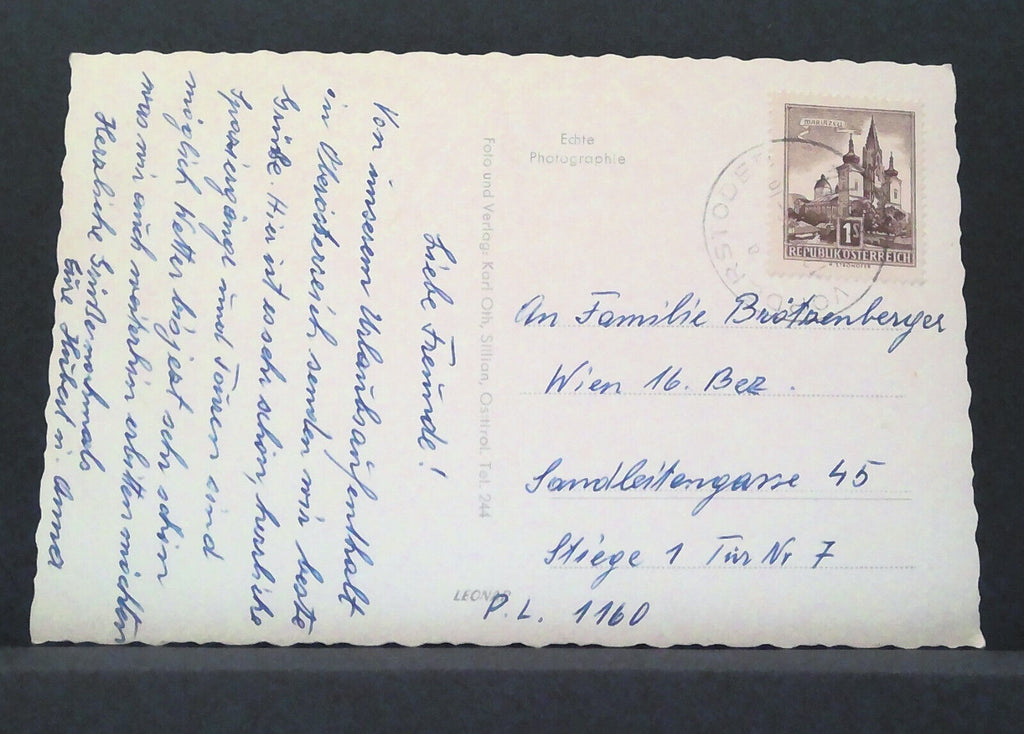 Liebe Freunde!
Von unserem Urlaubsaufenthalt
in Oberösterreich senden wir beste
Grüße. Hier ist es sehr schön, herrliche
Spaziergänge und Touren sind
möglich Wetter bis jezt sehr schön
was wir auch weiterhin erbitten möchten
Herzliche Grüße nochmals
Eure Hubert u. Anna
Foto und Verlag: Karl Oth, Sillian, Osttirol. Tel. 244
Echte
Photographie
MARIAZELL
1S
REPUBLIK ÖSTERREICH
An Familie Brotzenberger
Wien 16. Bez.
Sandleitengasse 45
Stiege 1 Tür Nr 7
LEONAR
P.L. 1160